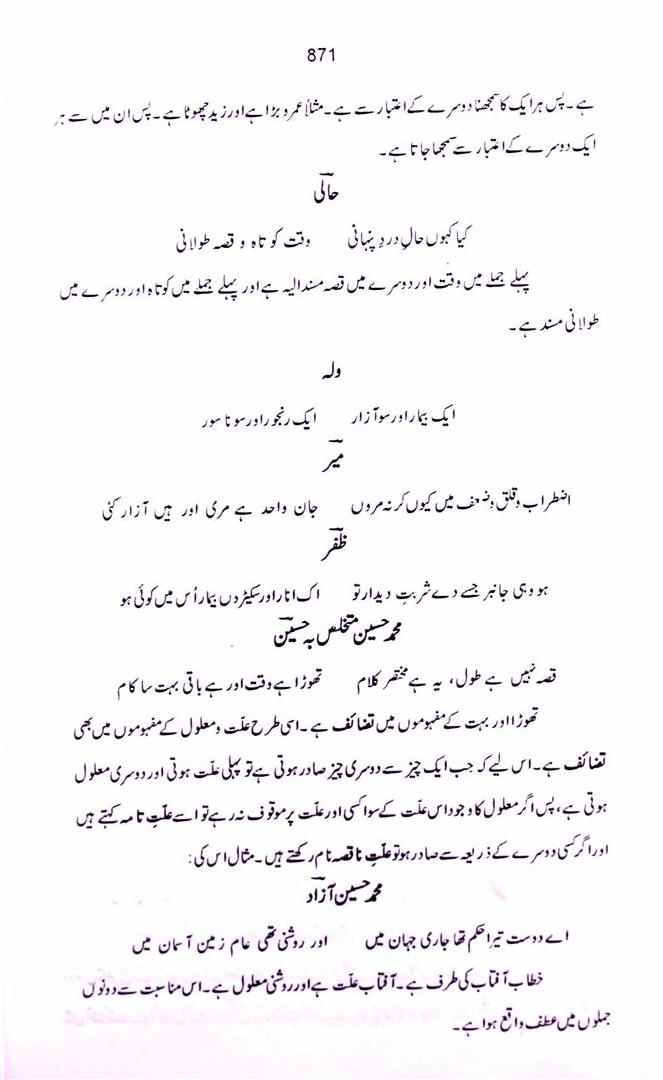 871
ہے۔ پس ہر ایک کا سمجھنا دوسرے کے اعتبار سے ہے۔ مثلاً عمرو بڑا ہے اور زید چھوٹا ہے۔ پس ان میں سے ہر
ایک دوسرے کے اعتبار سے سمجھا جاتا ہے۔
حالی
کیا کہوں حالِ دردِ پنہانی وقت کوتاہ و قصہ طولانی
پہلے جملے میں وقت اور دوسرے میں قصہ مسندالیہ ہے اور پہلے جملے میں کوتاہ اور دوسرے میں
طولانی مسند ہے۔
ولہ
ایک بیمار اور سو آزار ایک رنجور اور سو ناسور
میر
اضطراب و قلق و ضعف میں کیوں کر نہ مروں جان واحد ہے مری اور ہیں آزار کئی
ظفر
ہو وہی جانبر جسے دے شربتِ دیدار تو اک انار اور سیکڑوں بیمار اُس میں کوئی ہو
محمد حسین متخلص بہ حسین
قصہ نہیں ہے طول، یہ ہے مختصر کلام تھوڑا ہے وقت اور ہے باقی بہت سا کام
تھوڑا اور بہت کے مفہوموں میں تضائف ہے۔ اسی طرح علّت و معلول کے مفہوموں میں بھی
تضائف ہے۔ اس لیے کہ جب ایک چیز سے دوسری چیز صادر ہوتی ہے تو پہلی علّت ہوتی اور دوسری معلول
ہوتی ہے، پس اگر معلول کا وجود اس علّت کے سوا کسی اور علّت پر موقوف نہ رہے تو اسے علّتِ تامہ کہتے ہیں
اور اگر کسی دوسرے کے ذریعہ سے صادر ہو تو علّتِ ناقصہ نام رکھتے ہیں۔ مثال اس کی:
محمد حسین آزاد
اے دوست تیرا حکم تھا جاری جہان میں اور روشنی تھی عام زمین آسمان میں
خطاب آفتاب کی طرف ہے۔ آفتاب علّت ہے اور روشنی معلول ہے۔ اس مناسبت سے دونوں
جملوں میں عطف واقع ہوا ہے۔